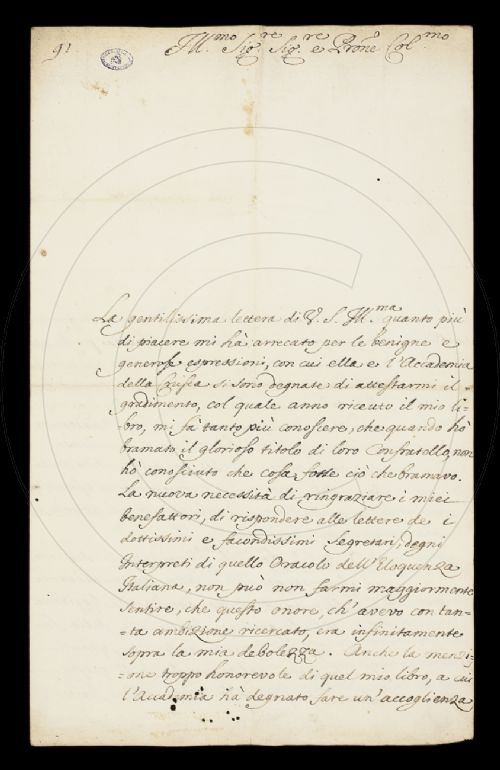 91
Ill.mo Sig.re Sig.re e Prõne Col.mo
La gentilissima lettera di V. S. Ill.ma quanto più
di piacere mi hà arrecato per le benigne e
generose espressioni, con cui ella e l'Accademia
della Crusca si sono degnate di attestarmi il
gradimento, col quale anno riceuto il mio li-
-bro, mi fa tanto più conoscere, che quando hò
bramato il glorioso titolo di loro Confratello, non
hò conosciuto che cosa fosse ciò che bramavo.
La nuova necessità di ringraziare i miei
benefattori, di rispondere alle lettere de i
dottissimi e facondissimi Segretari, degni
Interpreti di quello Oracolo dell'Eloquenza
Italiana, non può non farmi maggiormente
sentire, che questo onore, ch'avevo con tan=
=ta ambizione ricercato, era infinitamente
sopra la mia debolezza. Anche la menzi=
=one troppo honorevole di quel mio libro, a cui
l'Accademia hà degnato fare un'accoglienza